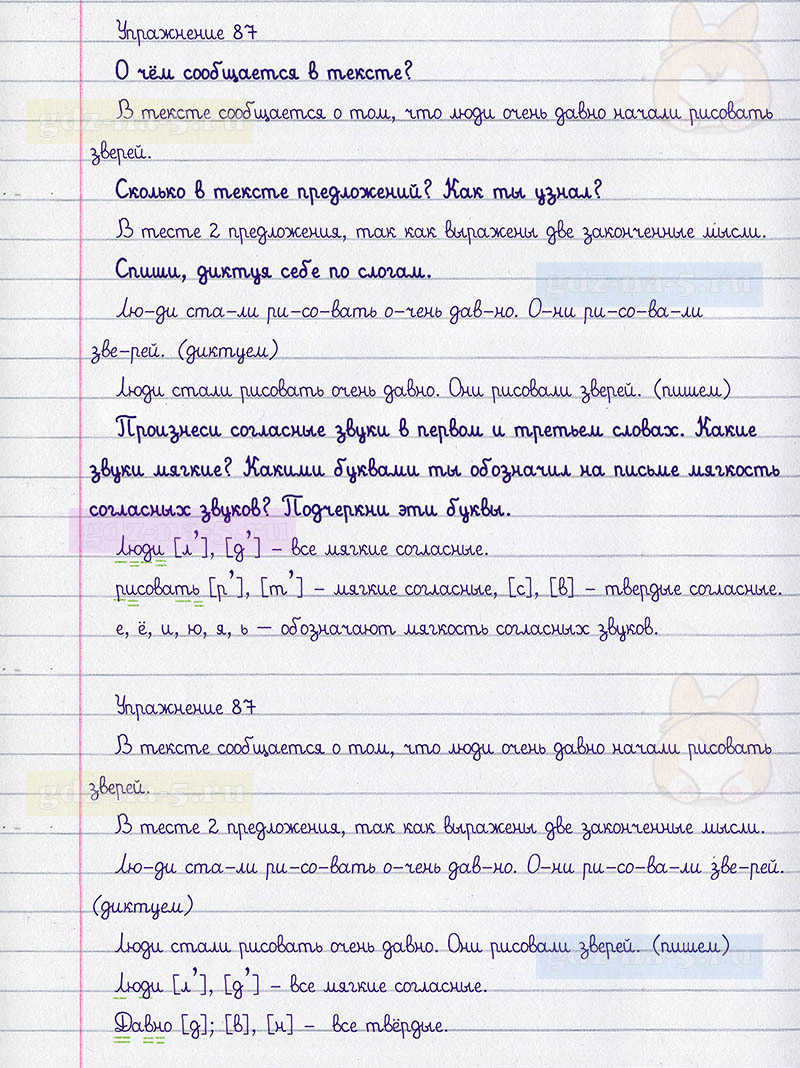 Упражнение 87
О чём сообщается в тексте?
В тексте сообщается о том, что люди очень давно начали рисовать
gdz-na-5.ru
зверей.
Сколько в тексте предложений? Как ты узнал?
В тесте 2 предложения, так как выражены две законченные мысли.
Спиши, диктуя себе по слогам.
gdz-na-5.ru
Лю-ди ста-ли ри-со-вать о-чень дав-но. О-ни ри-со-ва-ли
зве-рей. (диктуем)
Люди стали рисовать очень давно. Они рисовали зверей. (пишем)
Произнеси согласные звуки в первом и третьем словах. Какие
звуки мягкие? Какими буквами ты обозначил на письме мягкость
согласных звуков? Подчеркни эти буквы.
gdz-na-5.ru
Люди [л’], [д’] – все мягкие согласные.
рисовать [р’], [т’] – мягкие согласные, [с], [в] – твердые согласные.
е, ё, и, ю, я, ь — обозначают мягкость согласных звуков.
Упражнение 87
В тексте сообщается о том, что люди очень давно начали рисовать
зверей.
gdz-na-5.ru
В тесте 2 предложения, так как выражены две законченные мысли.
Лю-ди ста-ли ри-со-вать о-чень дав-но. О-ни ри-со-ва-ли зве-рей.
(диктуем)
Люди стали рисовать очень давно. Они рисовали зверей. (пишем)
gdz-na-5.ru
Люди [л’], [д’] – все мягкие согласные.
Давно [д]; [в], [н] – все твёрдые.